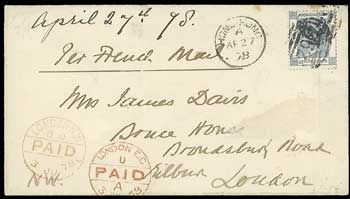 April 27th 78.
HONG KONG
A
AP 27
78
Per French Mail
Mrs James Davis
Bruce House
Brondesbury Road
Kilburn
London
N.W.
LONDON
PAID
78
LONDON E.C
U
PAID
A
3 78